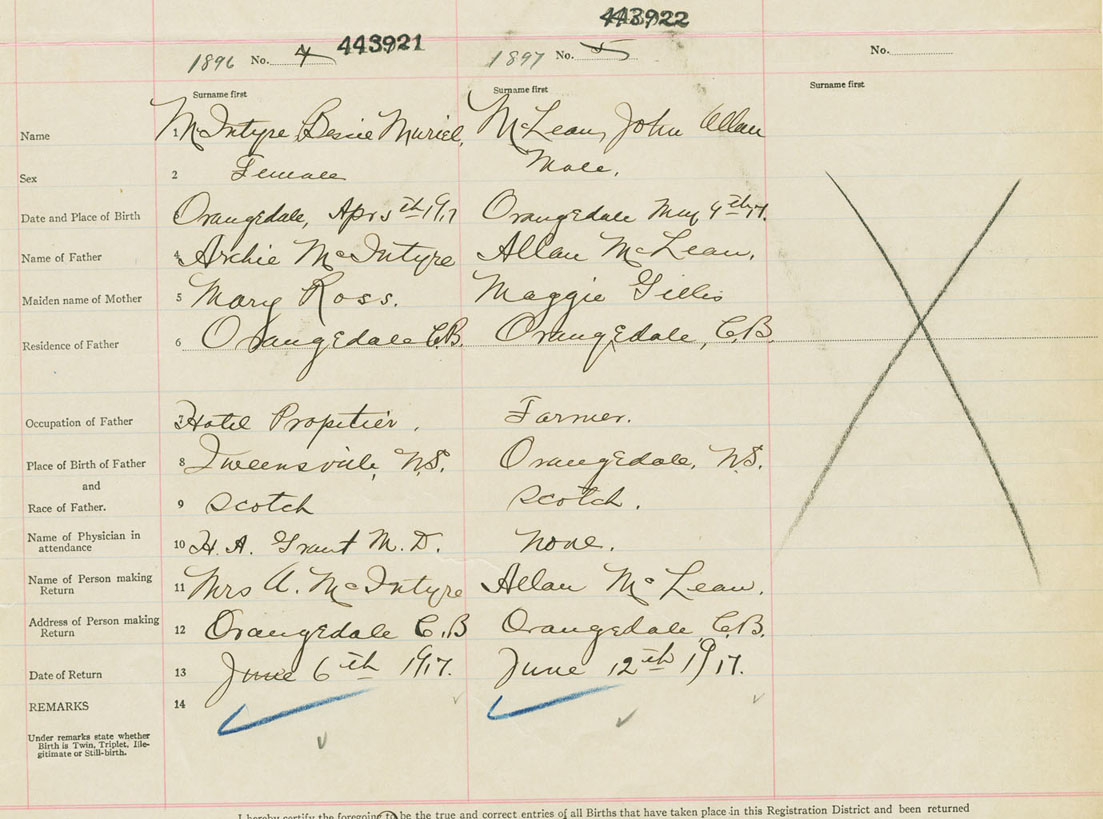 443921
443922
1896 No. 4
1897 No. 5
No.
Surname first
Surname first
Surname first
Name 1 McIntyre, Bessie Muriel, McLean, John Allan
Sex 2 Female Male.
Date and Place of Birth Orangedale, Apr 5th 1917 Orangedale May 9th 17.
Name of Father 4 Archie McIntyre Allan McLean.
Maiden name of Mother 5 Mary Ross. Maggie Gillis
Residence of Father 6 Orangedale C.B. Orangedale, C.B.
Occupation of Father 7 Hotel Propetier. Farmer.
Place of Birth of Father 8 Queensville, N.S. Orangedale, N.S.
and
Race of Father. 9 Scotch Scotch.
Name of Physician in
attendance 10 H. A. Grant M. D. None.
Name of Person making
Return 11 Mrs A. McIntyre Allan McLean.
Address of Person making
Return 12 Orangedale C.B Orangedale, C.B.
Date of Return 13 June 6th 1917. June 12th 1917.
REMARKS 14
Under remarks state whether
Birth is Twin, Triplet, Ille-
gitimate or Still-birth.
I hereby certify the foregoing to be the true and correct entries of all Births that have taken place in this Registration District and been returned